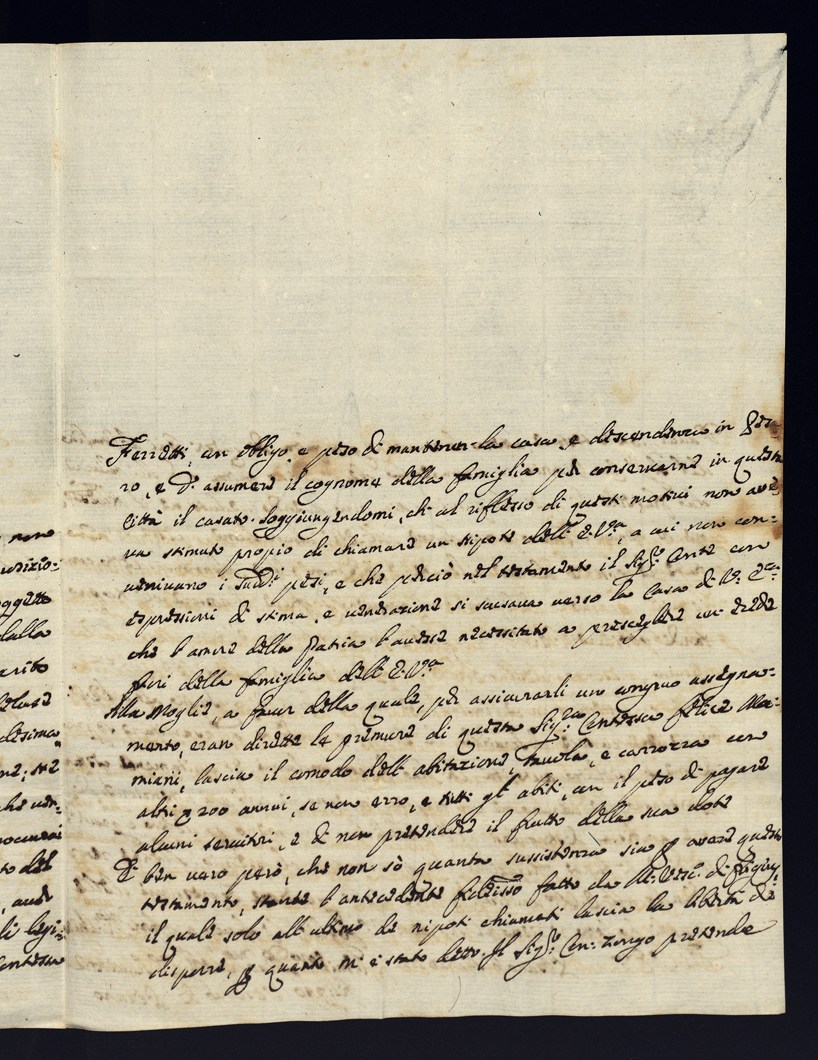 Ferretti, con obligo, e peso di mantener la casa, e descendenza in Pesa-
ro, e d'assumere il cognome della famiglia per conservarne in questa
Città il casato. Soggiungendomi, ch'al riflesso di questi motivi non ave-
va stimato proprio di chiamare un nipote dell'E. V.ra, a cui non con-
venivano i sudd.i pesi, e che perciò nel testamento il Sig.r Conte con
espressioni di stima, e venerazione si scusava verso la Casa di V. E.
che l'amore della Patria l'avesse necessitato a prescegliere un erede
fuori della famiglia dell'E. V.ra
Alla Moglie, a favor della quale, per assicurarli un congruo assegna-
mento, eran dirette le premure di questa Sig.ra Contessa Felice Ma-
miani, lascia il comodo dell'abitazione, tavola, e carrozza con
altri 200 annui, se non erro, e tutti gl'abiti, con il peso di pagare
alcuni servitori, e di non pretendere il frutto della sua dote
È ben vero però, che non sò quanta sussistenza sia p avere questo
testamento, stante l'antecedente fidecisso fatto da M. Vesc.
il quale solo all'ultimo de nipoti chiamati lascia la libertà di
disporre, p quanto mi è stato detto. Il Sig.r Con: Zongo pretende
non
oggetto
dalla
marito
desima
to del
di legi-
Contessa